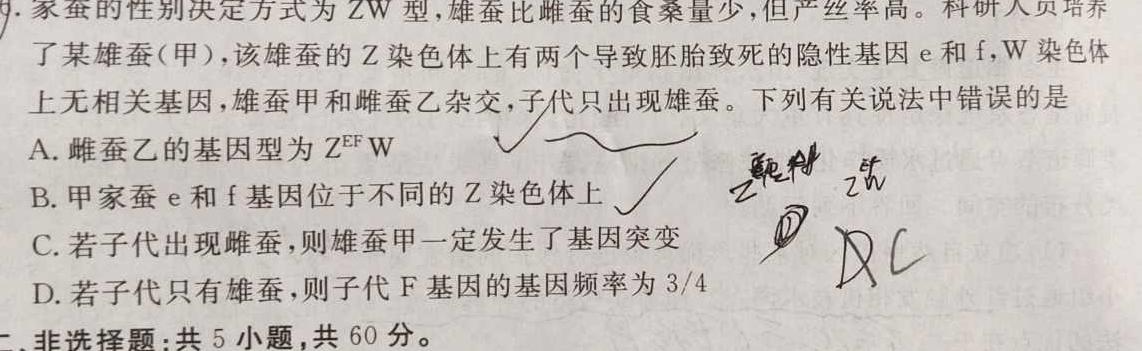 9. 家蚕的性别决定方式为 ZW 型,雄蚕比雌蚕的食桑量少,但产丝率高。科研人员培养
了某雄蚕(甲),该雄蚕的 Z 染色体上有两个导致胚胎致死的隐性基因 e 和 f,W 染色体
上无相关基因,雄蚕甲和雌蚕乙杂交,子代只出现雄蚕。下列有关说法中错误的是
A. 雌蚕乙的基因型为 Z^{EF}W
B. 甲家蚕 e 和 f 基因位于不同的 Z 染色体上
C. 若子代出现雌蚕,则雄蚕甲一定发生了基因突变
D. 若子代只有雄蚕,则子代 F 基因的基因频率为 3/4
DC
二、非选择题:共 5 小题,共 60 分。